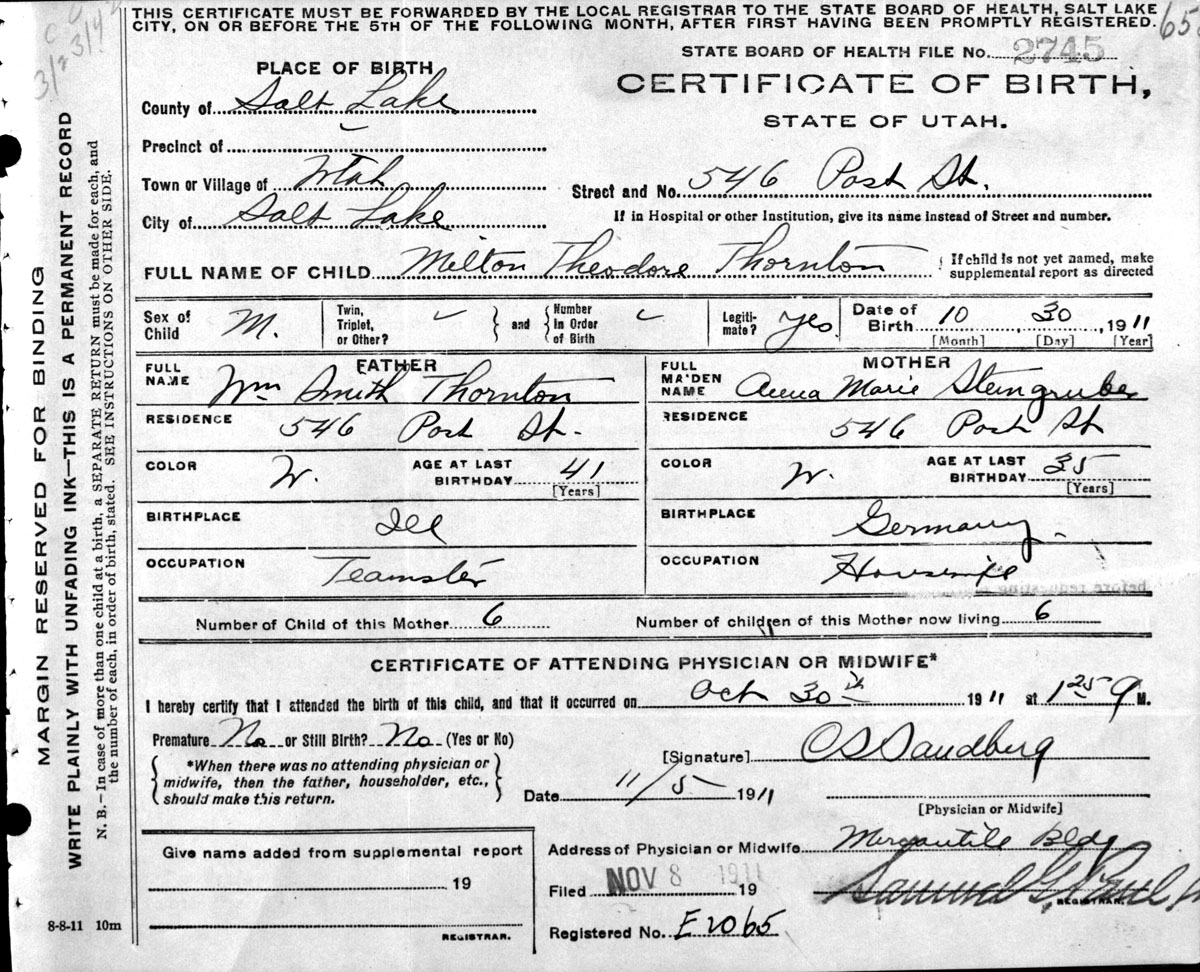 THIS CERTIFICATE MUST BE FORWARDED BY THE LOCAL REGISTRAR TO THE STATE BOARD OF HEALTH, SALT LAKE
CITY, ON OR BEFORE THE 5TH OF THE FOLLOWING MONTH, AFTER FIRST HAVING BEEN PROMPTLY REGISTERED.
STATE BOARD OF HEALTH FILE No. 2745
PLACE OF BIRTH
CERTIFICATE OF BIRTH,
STATE OF UTAH.
County of Salt Lake
Precinct of
Town or Village of Utah
Street and No. 546 Post St.
City of Salt Lake
If in Hospital or other Institution, give its name instead of Street and number.
FULL NAME OF CHILD Milton Theodore Thornton
If child is not yet named, make
supplemental report as directed
Sex of Child M.
Twin, Triplet, or Other?
and
Number In Order of Birth
Legiti-mate? yes
Date of Birth 10, 30, 1911
[Month] [Day] [Year]
FATHER
FULL NAME Wm Smith Thornton
RESIDENCE 546 Post St.
COLOR W. AGE AT LAST BIRTHDAY 41
[Years]
BIRTHPLACE Ill
OCCUPATION Teamster
MOTHER
FULL MAIDEN NAME Anna Marie Steingruber
RESIDENCE 546 Post St
COLOR W. AGE AT LAST BIRTHDAY 35
[Years]
BIRTHPLACE Germany.
OCCUPATION Housewife
Number of Child of this Mother 6
Number of children of this Mother now living 6
CERTIFICATE OF ATTENDING PHYSICIAN OR MIDWIFE*
I hereby certify that I attended the birth of this child, and that it occurred on Oct 30th 1911 at 1 25 M.
Premature No or Still Birth? No (Yes or No)
*When there was no attending physician or
midwife, then the father, householder, etc.,
should make this return.
[Signature] C S Sandberg
Date 11/5 1911
[Physician or Midwife]
Give name added from supplemental report
19
REGISTRAR.
Address of Physician or Midwife Mercantile Bldg
Filed NOV 8 1911 19
REGISTRAR.
Registered No. E2065
8-8-11 10m
MARGIN RESERVED FOR BINDING
WRITE PLAINLY WITH UNFADING INK—THIS IS A PERMANENT RECORD
N. B.—In case of more than one child at a birth, a SEPARATE RETURN must be made for each, and
the number of each, in order of birth, stated. SEE INSTRUCTIONS ON OTHER SIDE.